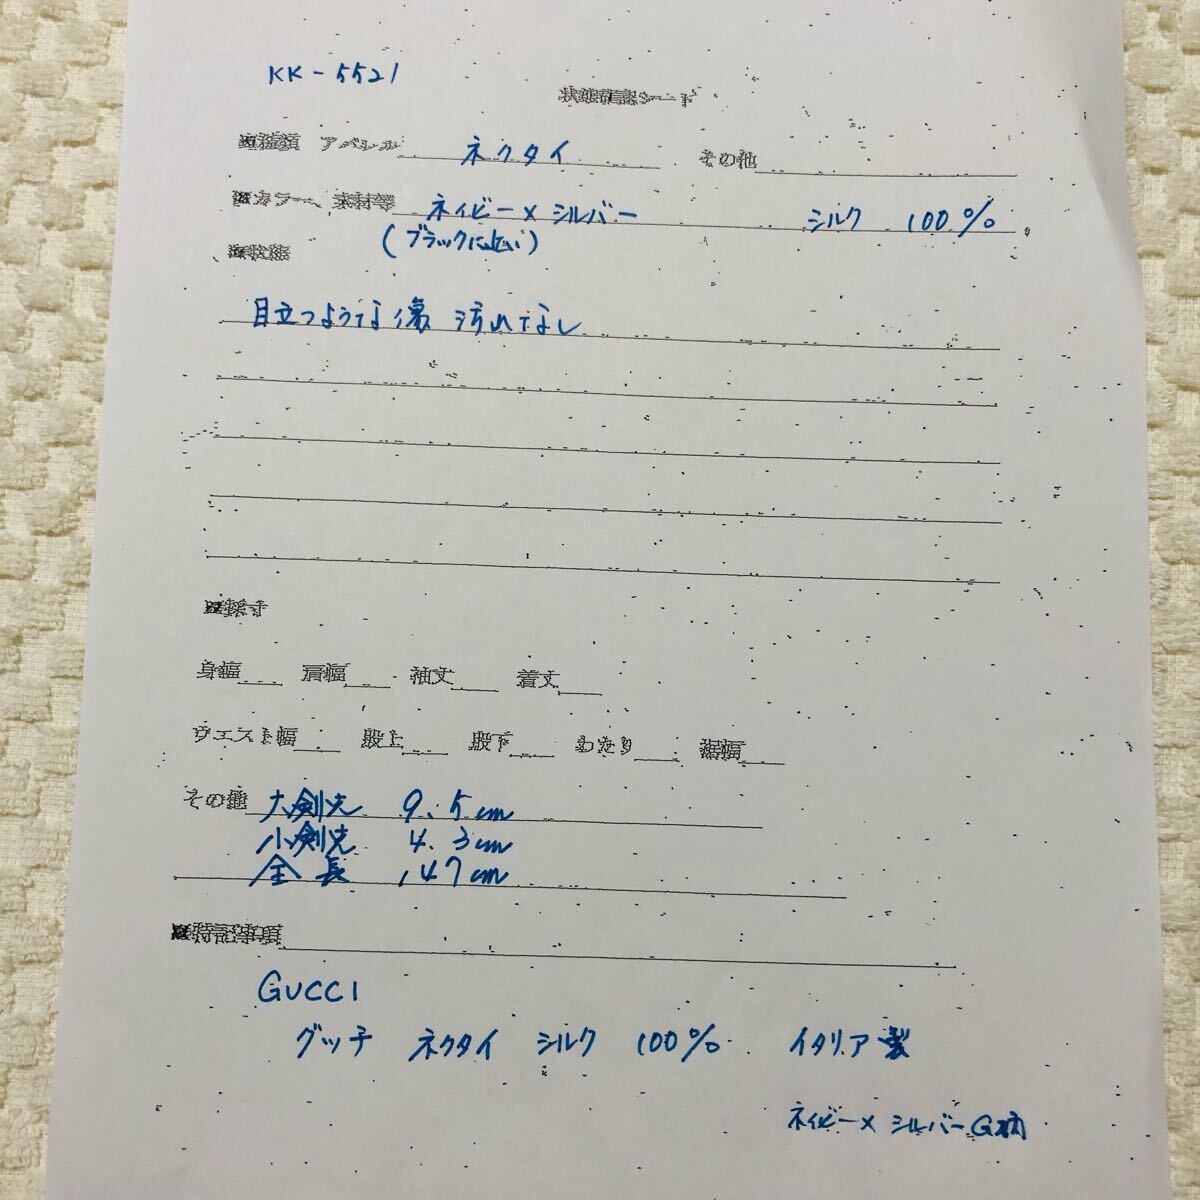 KK-5521
状態確認シート
■種類 アパレル ネクタイ その他
■カラー、素材等 ネイビー×シルバー シルク 100%
(ブラックに近い)
■状態
目立つような傷 汚れなし
■採寸
身幅 肩幅 袖丈 着丈
ウエスト幅 股上 股下 わたり 裾幅
その他 大剣先 9.5cm
小剣先 4.3cm
全長 147cm
■特記事項
GUCCI
グッチ ネクタイ シルク 100% イタリア製
ネイビー×シルバーG柄